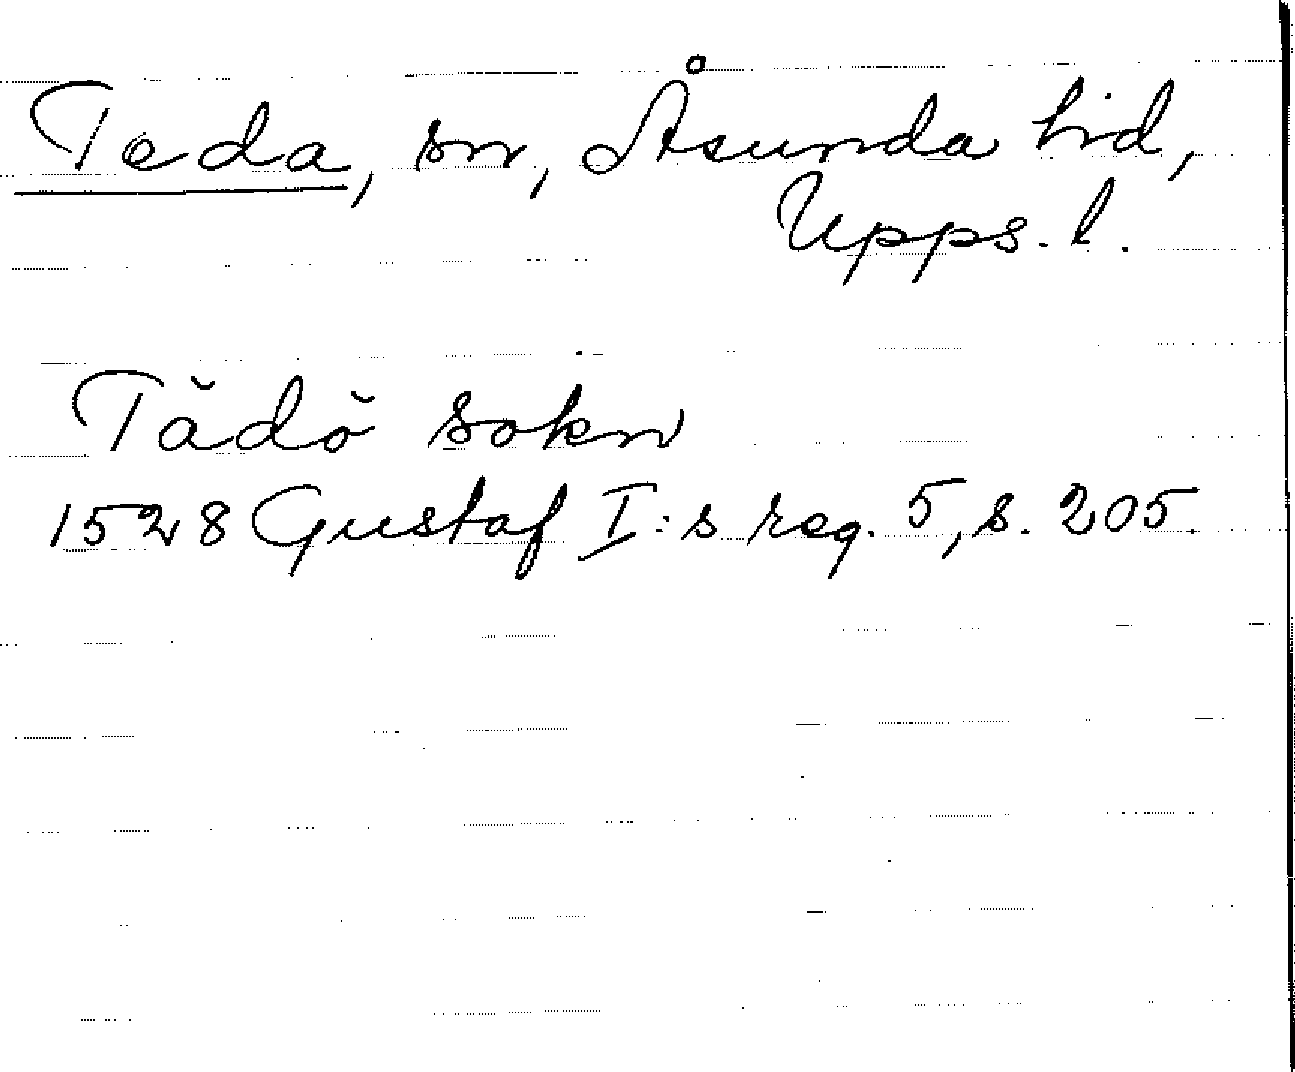 Teda, sn, Åsunda hd,
Upps. l.
Tädö sokn
1528 Gustaf I:s reg. 5, s. 205.